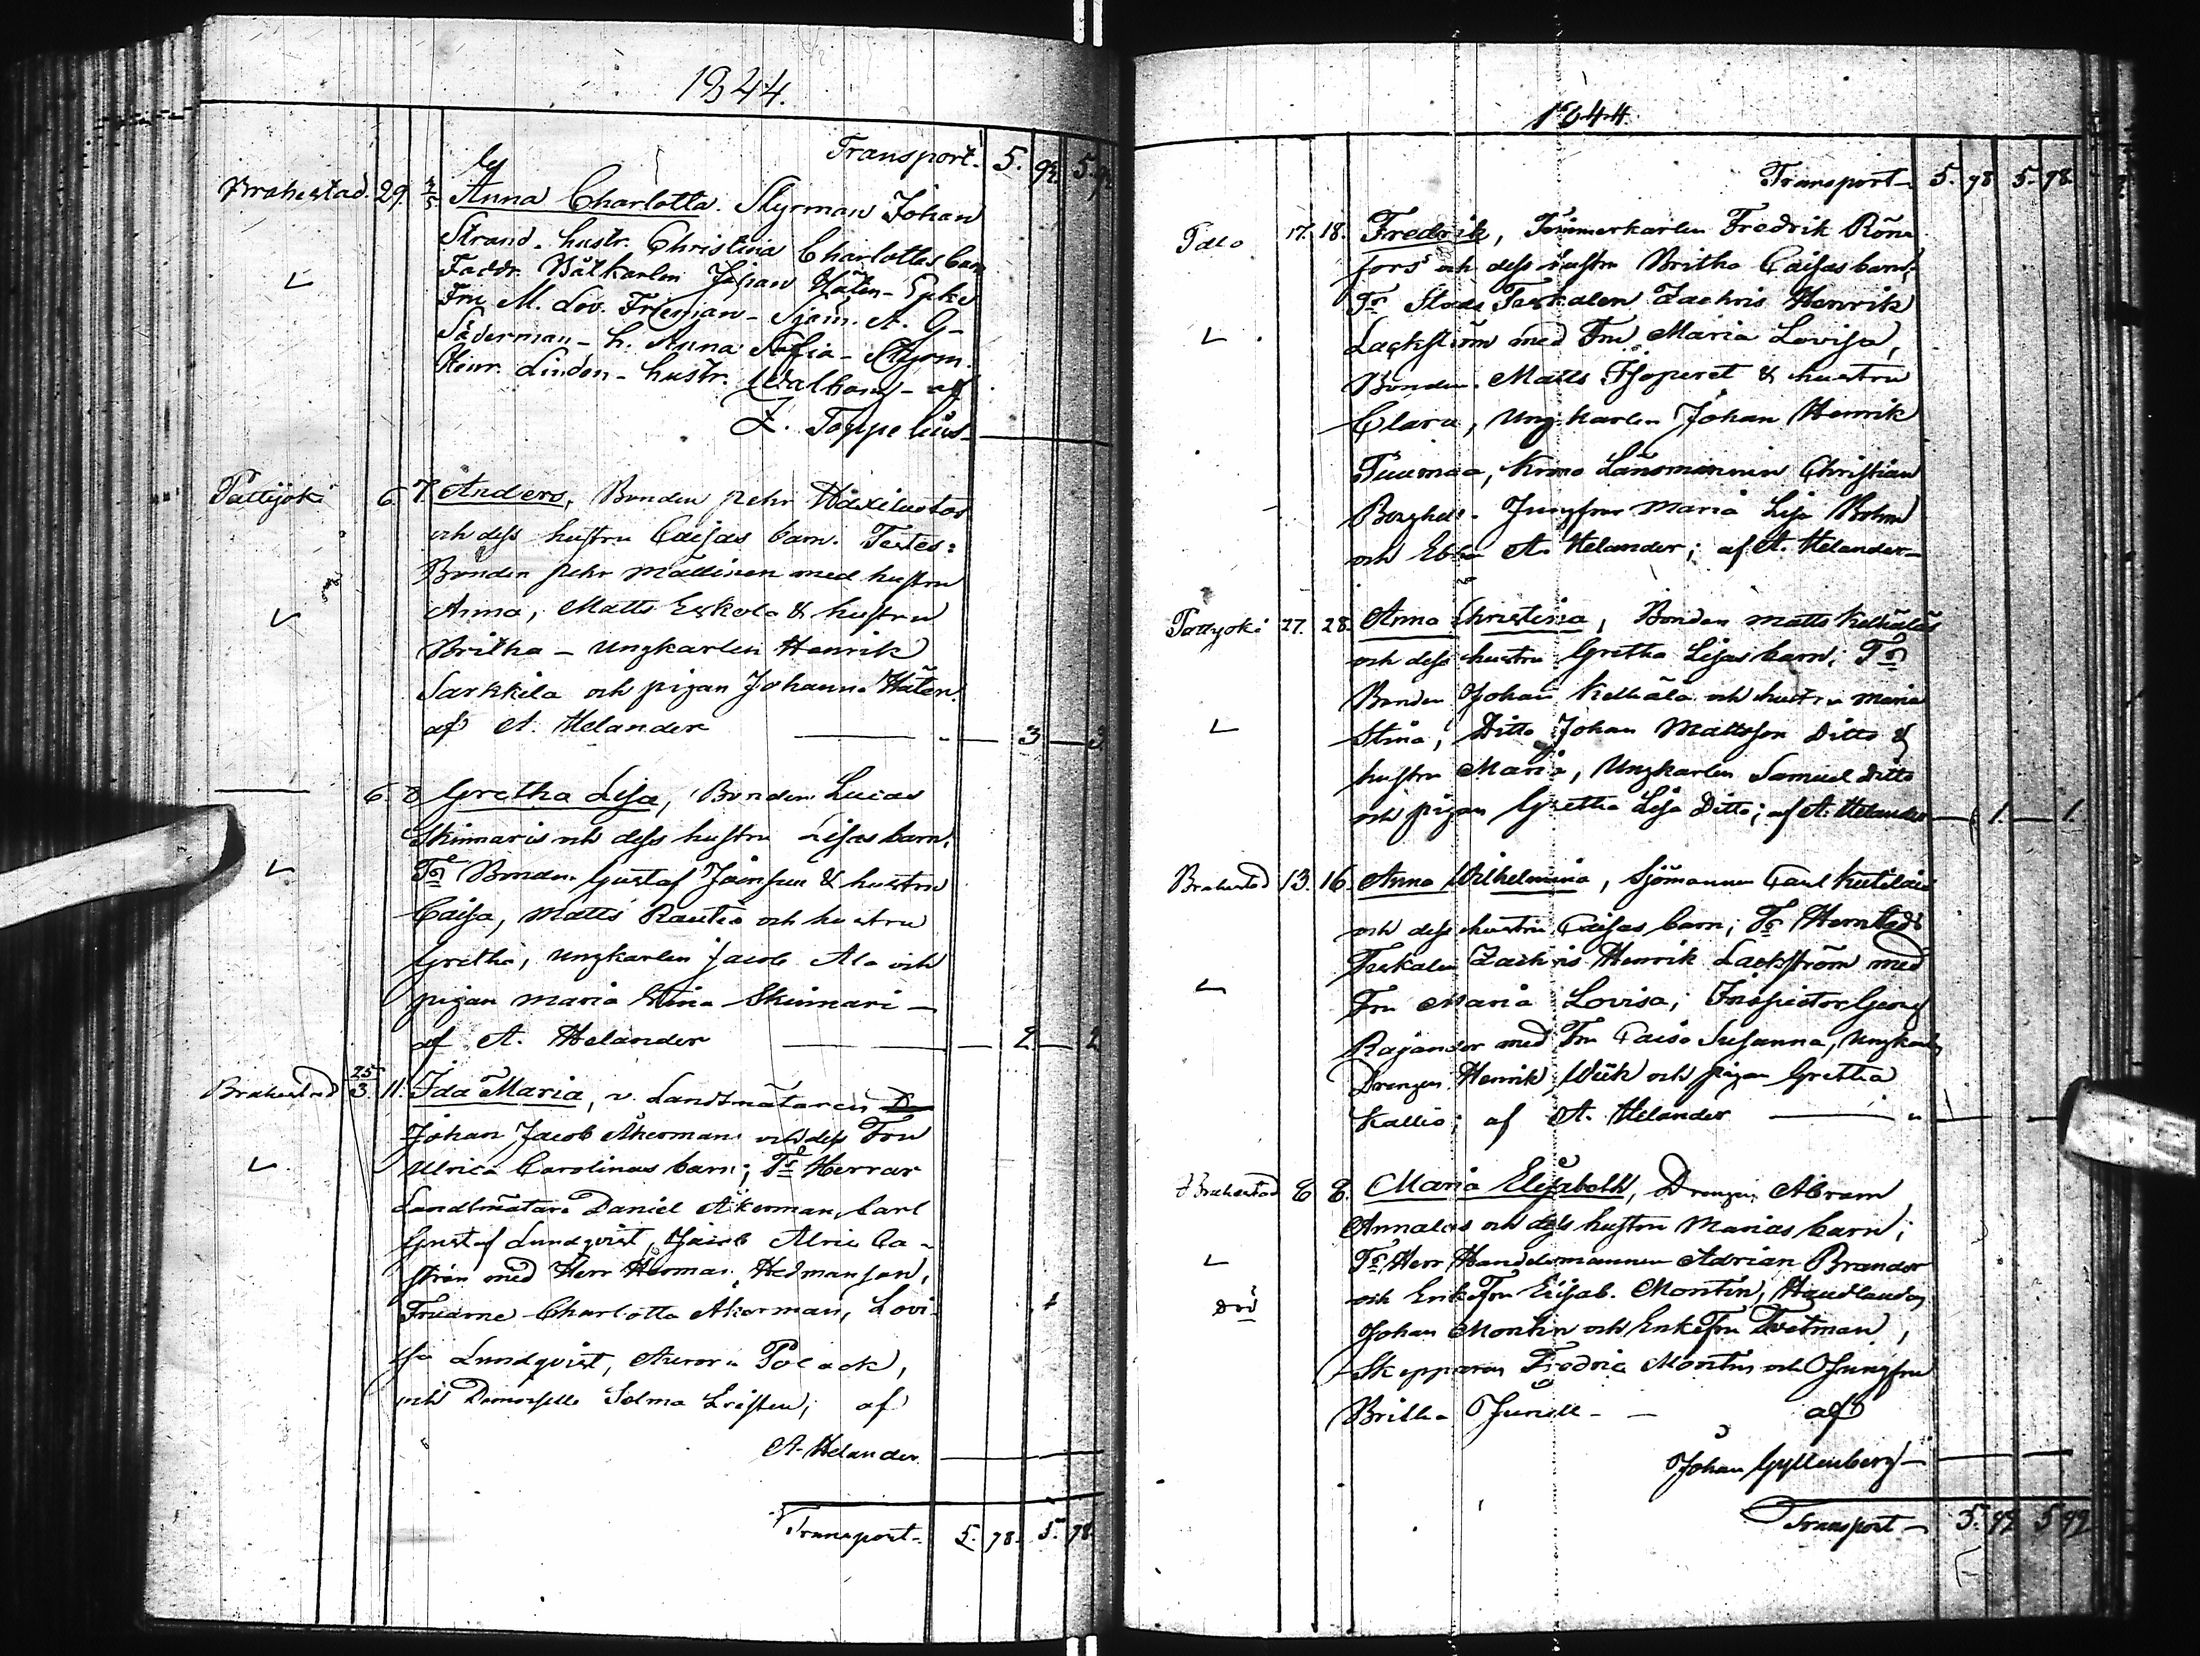 1844.
Transport. 5. 92. 5. 92
Brahestad. 29. 4/5 Anna Charlotta. Styrman Johan
Strand. hustr. Christina Charlottas barn
Faddr. Båtkarlen Johan Håten - Enke
Fru M. Lov. Frieman - Sjöm. A. G-
Söderman - h. Anna Sofia - Styrm.
Henr. Linden - hustr. Walborg - af
Z. Toppelius
Pattijoki 6. 7. Anders, Bonden Pehr
och dess hustru Caisas barn. Testes:
Bonden Pehr Mattinen med hustru
Anna, Matts Eskola & hustru
Britha - Ungkarlen Henrik
Sarkkila och pigan Johanna Håten
af A. Helander - 3 - 3
6. 8 Gretha Lisa, Bonden Lucas
Skinnaris och dess hustru Lisas barn,
Ts Bonden Gustaf & hustru
Caisa, Matts Rautio och hustru
Gretha, Ungkarlen Jacob Ala och
pigan Maria Stina Skinnari -
af A. Helander - 2 - 2
Brahestad 25/3. 11. Ida Maria, v. Landtmätaren
Johan Jacob Åkerman och dess Fru
Ulrica Carolinas barn; Ts Herrar
Landtmätare Daniel Åkerman, Carl
Gustaf Lundqvist, Jacob Alric Ca-
strén med Herr Herman Hedmanson,
Fruarne Charlotta Åkerman, Lovi-
sa Lundqvist, Aurora Polack,
och Demoiselle Selma af
A. Helander
Transport. 5. 98. 5. 98.
1844
Transport 5. 98 5. 98.
Palo 17. 18. Fredrik, Timmerkarlen Fredrik Rönn
fors och dess hustru Britha Caisas barn;
Ts Stads Fiskalen Zachris Henrik
Lackström med Fru Maria Lovisa,
Bonden Matts & hustru
Clara, Ungkarlen Johan Henrik
Tuumaa, Krono Länsmannen Christian
Borghell - Jungfrur Maria Lisa Bohm
och Ebba A. Helander; af A. Helander
Pattijoki 27. 28. Anna Christina, Bonden Matts Keltäläs
och dess hustru Gretha Lisas barn; Ts
Bonden Johan Keltälä och hustru Maria
Stina, Ditto Johan Mattsson Ditto &
hustru Maria, Ungkarlen Samuel Ditto
och pigan Gretha Lisa Ditto; af A. Helander 1. 1.
Brahestad 13. 16. Anna Wilhelmina, Sjömannen Carl
och dess hustru Caisas barn; Ts Herr Stads
Fiskalen Zachris Henrik Lackström med
Fru Maria Lovisa; Inspector Georg
Rajander med Fru Caisa Susanna, Ungkarlen
Drengen Henrik Wiik och pigan Gretha
Kallio; af A. Helander
Brahestad 6 8. Maria Elisabeth, Drengen Abram
Annalas och dess hustru Marias barn;
Ts Herr Handelsmannen Adrian Brander
och EnkeFru Elisab. Montin, Handlanden
Död
Johan Montin och EnkeFru
Skepparen Fredric Montin och Jungfru
Britha Junell - af
Johan Gyllenberg
Transport 5. 99 5 99